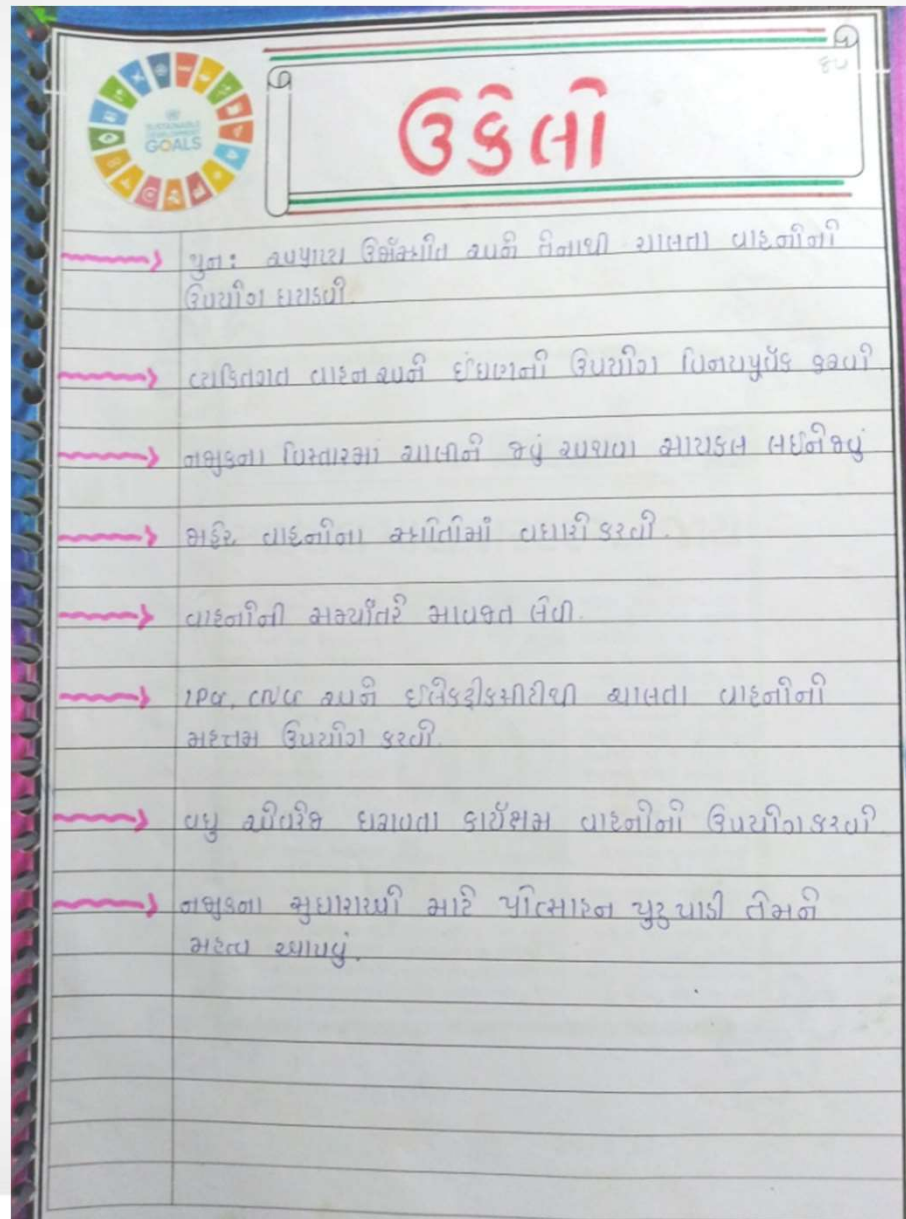 SUSTAINABLE
DEVELOPMENT
GOALS
ઉકેલો
પુન: અપ્રાપ્ય ઉર્જાસ્ત્રોત અને તેનાથી ચાલતા વાહનોનો
ઉપયોગ ઘટાડવો.
વ્યક્તિગત વાહન અને ઈંધણનો ઉપયોગ વિનયપૂર્વક કરવો
નજીકના વિસ્તારમાં ચાલીને જવું અથવા સાયકલ લઈને જવું
જાહેર વાહનોના સ્ત્રોતોમાં વધારો કરવો.
વાહનોની સમયાંતરે માવજત લેવી.
CNG અને ઈલેકટ્રીકસીટીથી ચાલતા વાહનોનો
મહત્તમ ઉપયોગ કરવો.
વધુ એવરેજ ધરાવતા કાર્યક્ષમ વાહનોનો ઉપયોગ કરવો.
નજીકના સુધારાઓ માટે પ્રોત્સાહન પુરુ પાડી તેમને
મહત્વ આપવું.